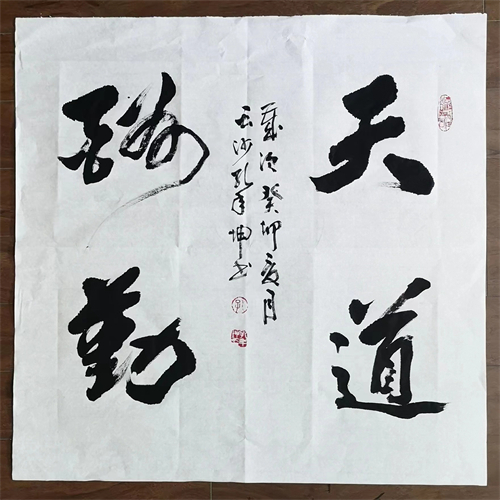 天道
酬勤
歲次癸卯夏月
長沙孔坤書